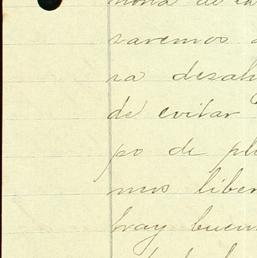 de
varemos
ra desah
de evitar
po de pl
mos liber
hay buen